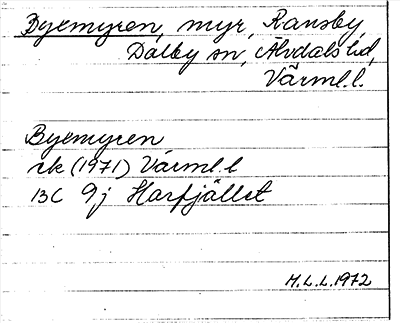 Byemyren, myr, Ransby,
Dalby sn, Älvdals hd,
Värml.l.
Byemyren
rk (1971) Värml.l
13C 9j Harfjället
H.L.L. 1972